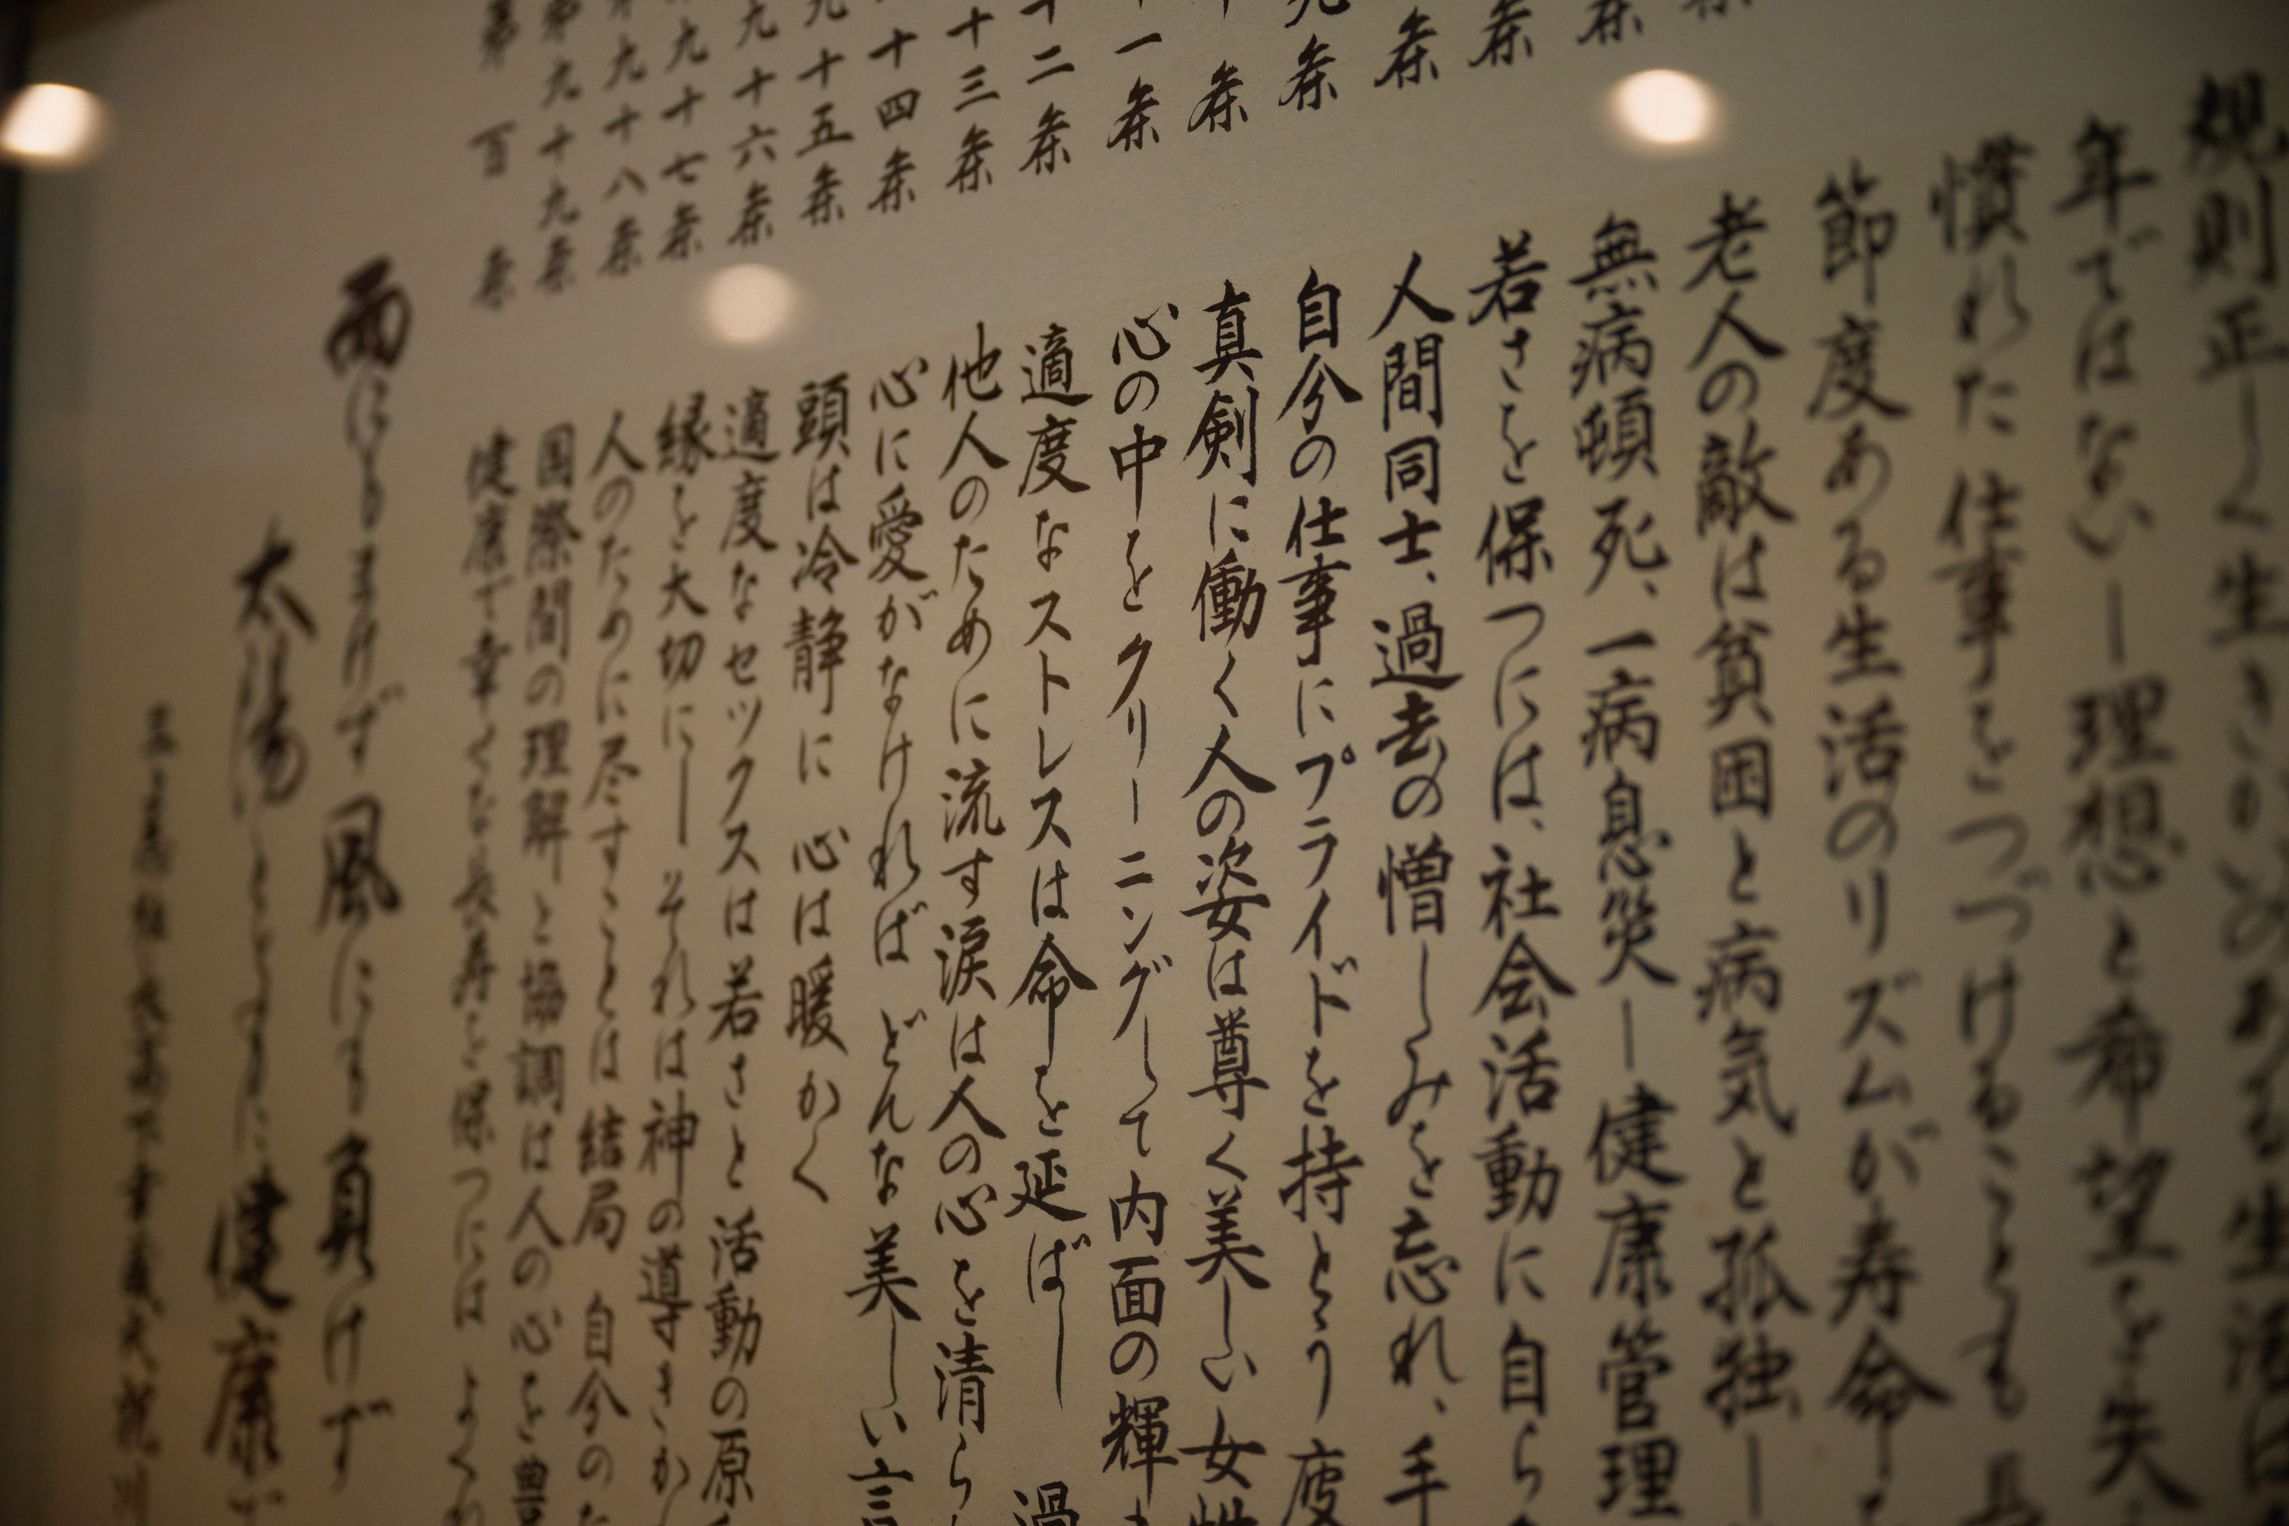 規則正しく生き
年ではない―理想と希望を失
慣れた仕事をつづけることも
節度ある生活のリズムが寿命
老人の敵は貧困と病気と孤独―
条 無病頓死、一病息災―健康管理
条 若さを保つには、社会活動に自ら
条 人間同士、過去の憎しみを忘れ、手
九条 自分の仕事にプライドを持とう 疲
十条 真剣に働く人の姿は尊く美しい 女性
十一条 心の中をクリーニングして内面の輝
十二条 適度なストレスは命を延ばし 過
十三条 他人のために流す涙は人の心を清ら
十四条 心に愛がなければ どんな美しい言
九十五条 頭は冷静に 心は暖かく
九十六条 適度なセックスは若さと活動の原
九十七条 縁を大切に―それは神の導きか
九十八条 人のために尽すことは結局 自分のた
第九十九条 国際間の理解と協調は人の心を豊
第百条 健康で幸せな長寿を保つには よく
雨にもまけず 風にも負けず
太陽とともに 健康が